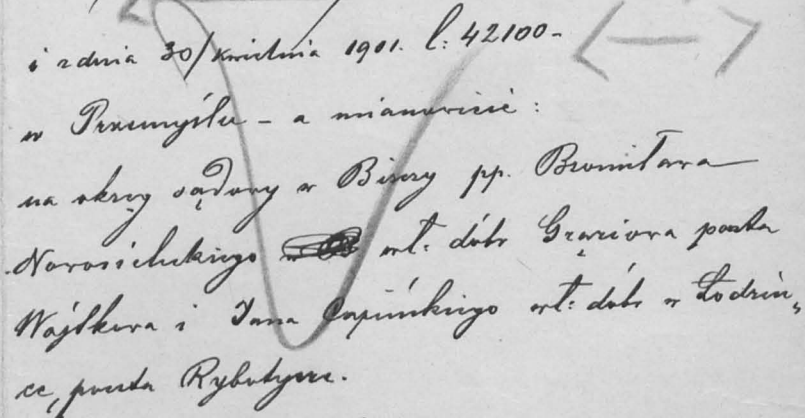 i z dnia 30/kwietnia 1901. l: 42100-
w Przemyślu - a mianowicie :
na okręg sądowy w Birczy pp. Bronisława
Nowosieleckiego wł: dóbr Grąziowa poczta
Wojtkowa i Jana Capińskiego wł: dóbr w Łodzin„
ce, poczta Rybotycze.